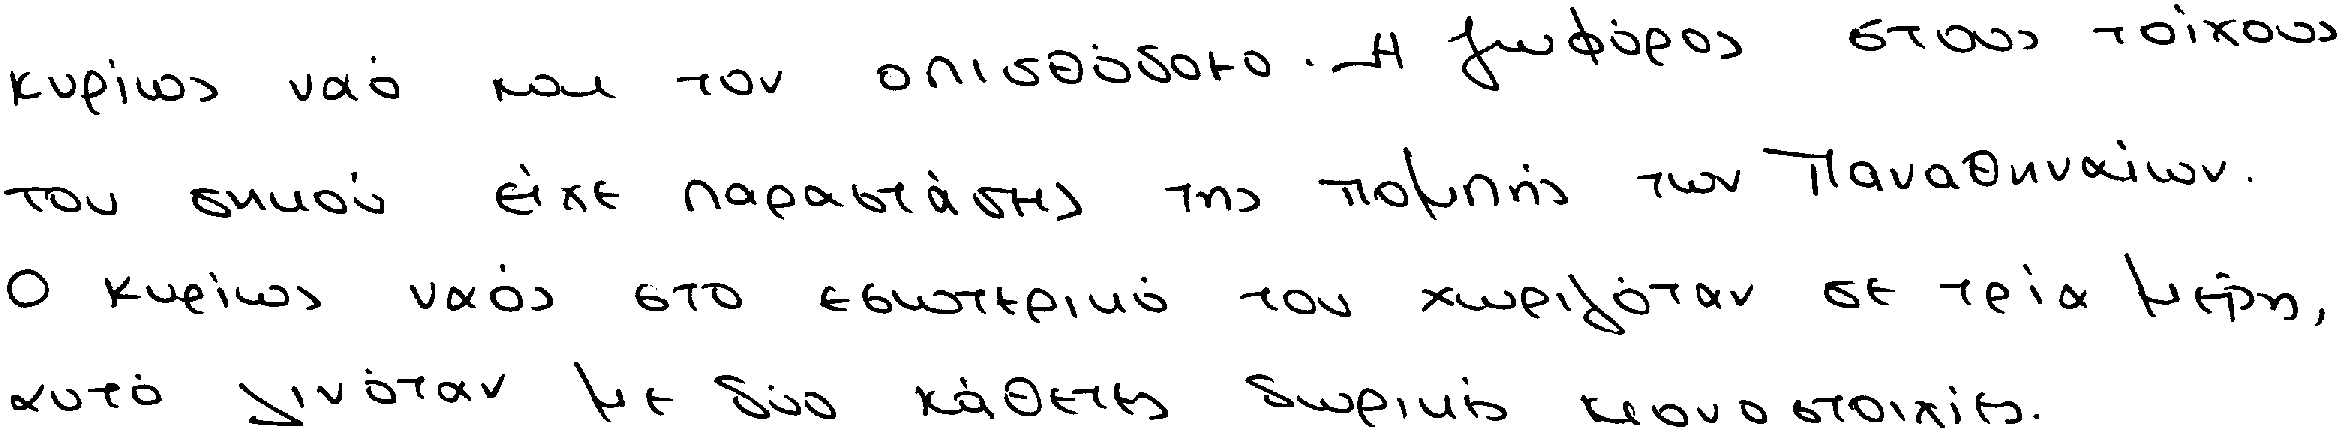 κυρίως ναό και τον οπισθόδομο. Η ζωφόρος στους τοίχους
του σηκού είχε παραστάσεις της πομπής των Παναθηναίων.
Ο κυρίως ναός στο εσωτερικό του χωριζόταν σε τρία μέρη,
αυτό γινόταν με δύο κάθετες δωρικές κιονοστοιχίες.